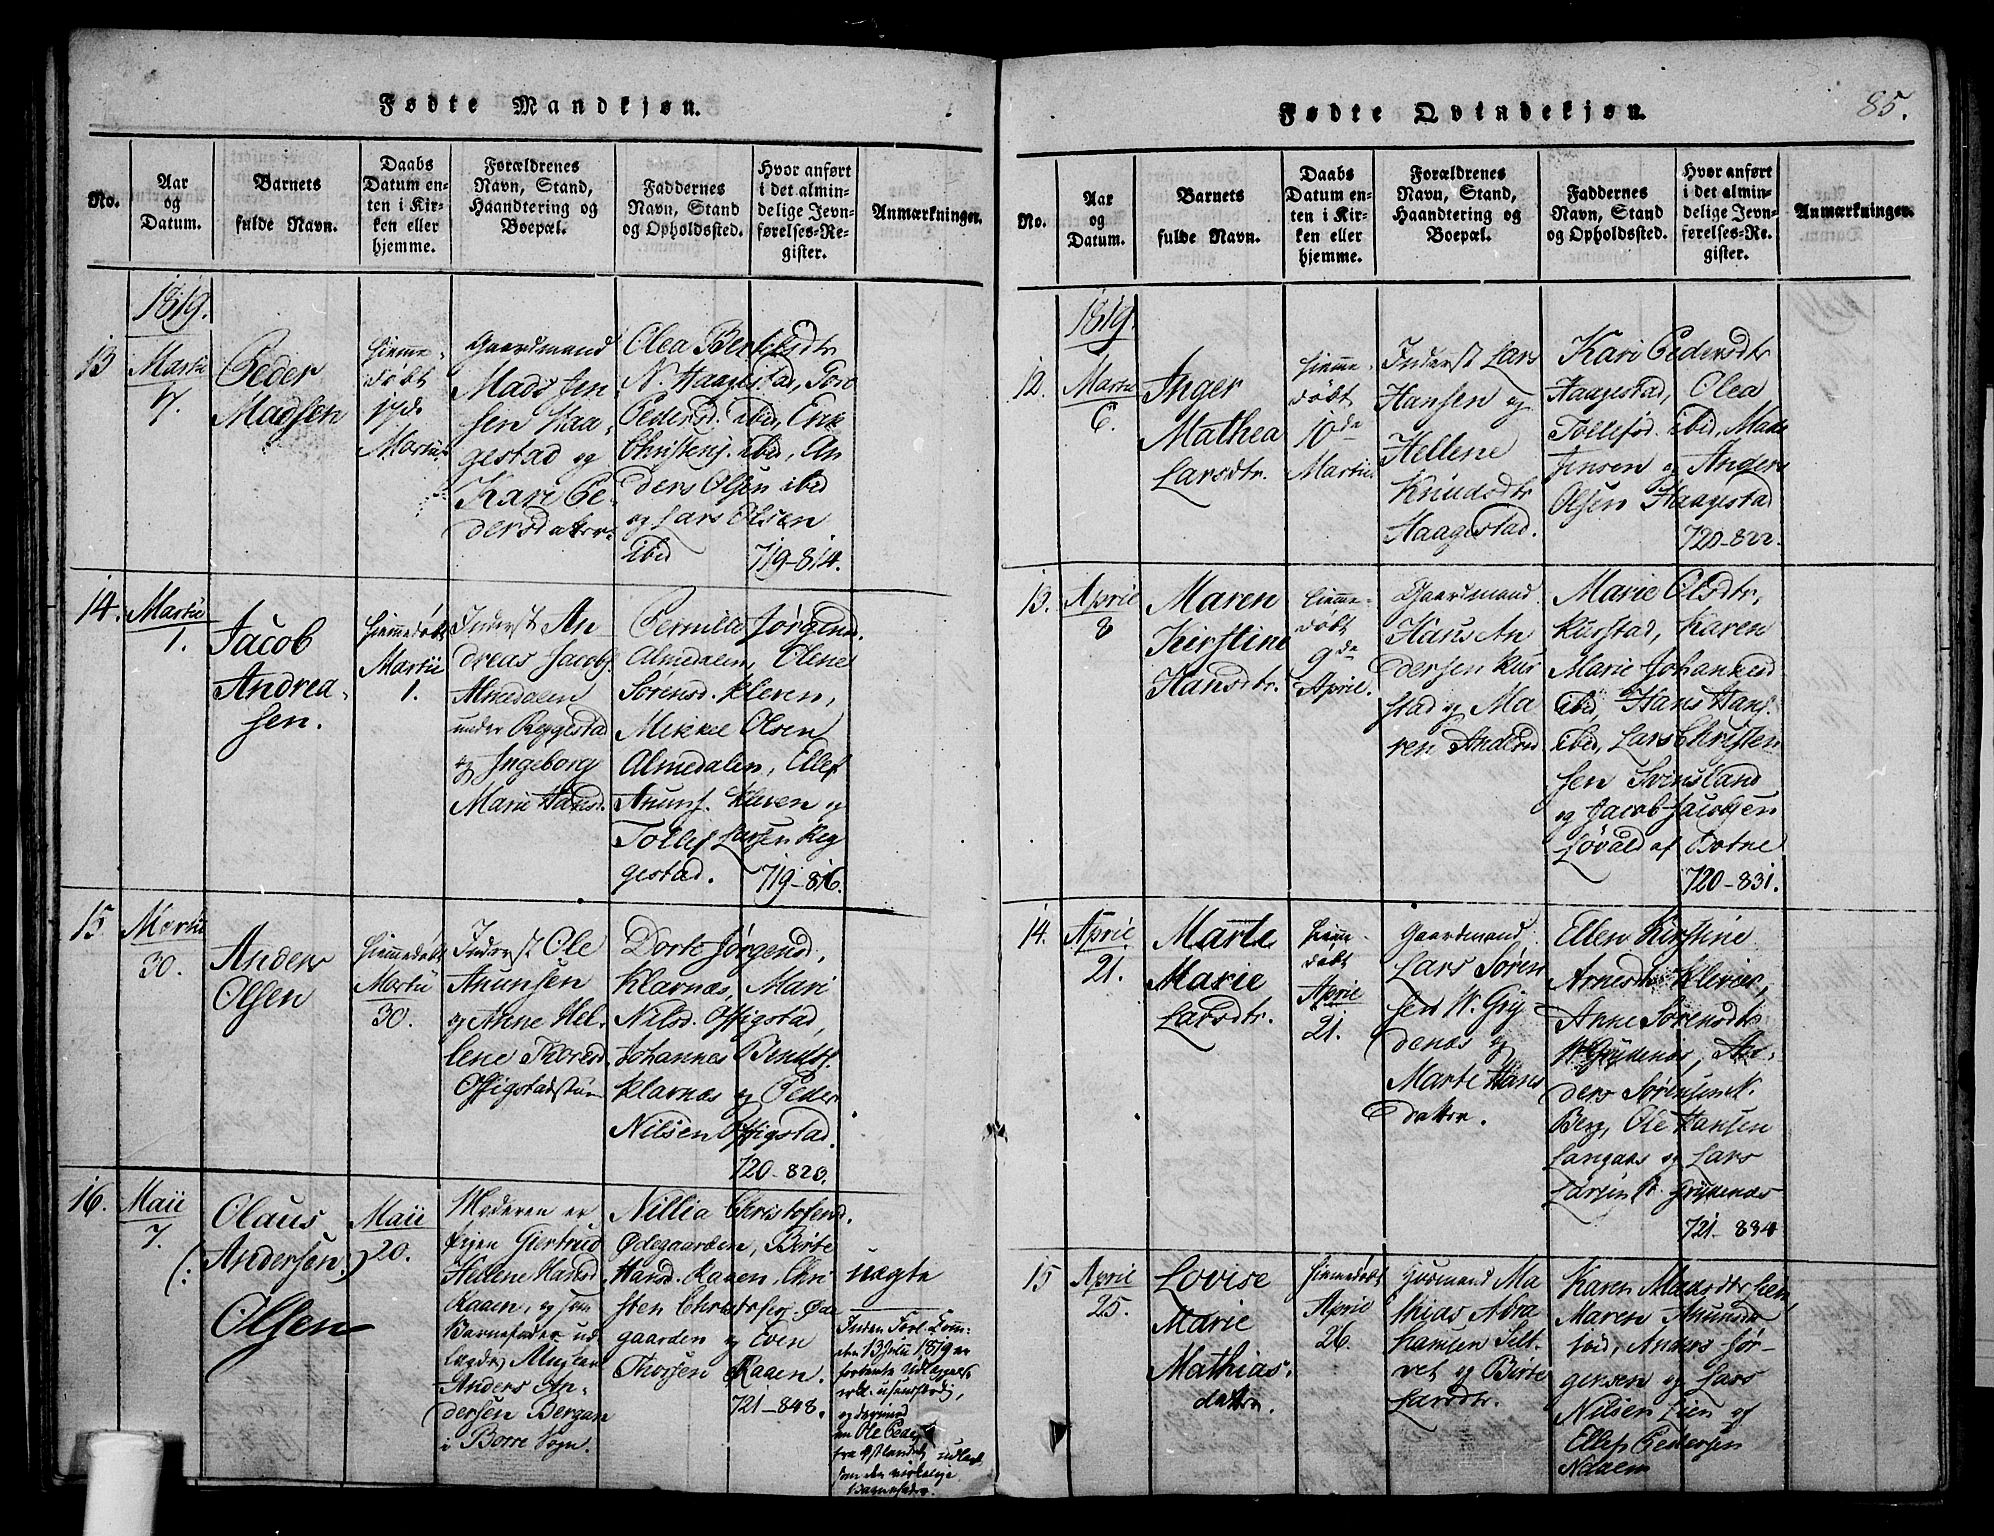 Fødte Mandkjøn.
No.
Aar
og
Datum.
Barnets
fulde Navn.
Daabs
Datum en-
ten i Kir-
ken eller
hjemme.
Forældrenes
Navn, Stand,
Haandtering og
Boepæl.
Faddernes
Navn, Stand
og Opholdssted.
Hvor anført
i det almin-
delige Jevn-
førelses-Re-
gister.
Anmærkninger.
1819.
13
Martii
7.
Peder
Madsen
hiemme-
døbt
Martii
Gaardmand
Mads Jen
sen Haa-
gestad og
Kari Pe-
dersdatter
Olea Bentsdtr
N. Haagestad, Toro
Pedersd. ibid, Erik
Christens. ibid, An
ders Olsen ibid
og Lars Olsen
ibid
719-814.
14.
Martii
1.
Jacob
Andrea-
sen.
hiemmedøbt
Martii
1.
Inderst An
dreas Jacobs.
Almedalen
under Reggestad
og Ingeborg
Marie Hansd.
Pernille Jørgensd.
Almedalen, Oline
Sørensd. Kleven,
Mikkel Olsen
Almedalen, Ellef
Anuns. Kleven og
Tollef Larsen Reg
gestad.
719-816.
15
Martii
30.
Anders
Olsen
hiemmedøbt
Martii
30.
Inderst Ole
Anunsen
og Anne Hel-
lene Thoresd
Dorte Jørgensd,
Klavnæs, Mari
Nilsd. Offigstad,
Johannes Bendts.
Klavnæs og Peder
Nilsen Offigstad.
720-823.
16.
Maii
7.
Olaus
(: Andersen. )
Olsen
Maii
20.
Moderen er
Pigen Giertrud
Hellene Hansd
Raaen, og som
Barnefader ud
lagdes
Anders An-
dersen Bergan
i Borre Sogn.
Nillia Christofersd.
Ødegaarden, Birte
Hansd. Raaen, Chri
sten Christofers. Øde
gaarden og Even
Thorsen Raaen.
721-848.
uægte
Inden Forl. Comm:
den 13 Julii 1819 er
og derimod
en Ole Peders
udlagt
som den virkelige
Barnefader.
Fødte Qvindekjøn.
85.
No.
Aar
og
Datum.
Barnets
fulde Navn.
Daabs
Datum en-
ten i Kir-
ken eller
hjemme.
Forældrenes
Navn, Stand,
Haandtering og
Boepæl.
Faddernes
Navn, Stand
og Opholdssted.
Hvor anført
i det almin-
delige Jevn-
førelses-Re-
gister.
Anmærkninger.
1819.
12.
Martii
6.
Inger
Mathea
Larsdtr.
hiemme-
døbt
10de
Martii
Inderst Lars
Hansen og
Hellene
Knudsdtr
Haagestad.
Kari Pedersdtr
Haagestad, Olea
Tollefsd. ibid, Mads
Jensen og Anders
Olsen Haagestad
720-822.
13.
April
8
Maren
Kirstine
Hansdtr.
hiemme-
døbt
9de
April.
Gaardmand
Hans An
dersen Kus
stad og Ma
ren Andersd
Marie Olsdtr,
Kusstad, Karen
Marie Johannesd
ibid, Hans Hans.
ibid, Lars Christen
sen Svinsland
og Jacob Jacobsen
Løvald af Botne
720-831.
14.
April
21.
Marte
Marie
Larsdtr.
hiemme-
døbt
April
21.
Gaardmand
Lars Søren
sen W. Gry
denæs og
Marte Hans
datter.
Ellen Kirstine
Arnesdtr Klever,
Anne Sørensdtr
W. Grydenæs, An-
ders Sørensen N.
Berg, Ole Hansen
Langaas og Lars
Larsen Grydenæs
721-834
15
April
25.
Lovise
Marie
Mathias-
datter.
hiemmedøbt
April
26.
Huusmand Ma
thias Abra
hamsen Selt
vet og Birte
Larsdtr.
Karen Madsdtr Lien,
Maren Anunsd.
ibid, Anders Jør-
gensen og Lars
Nilsen Lien og
Ellef Pedersen